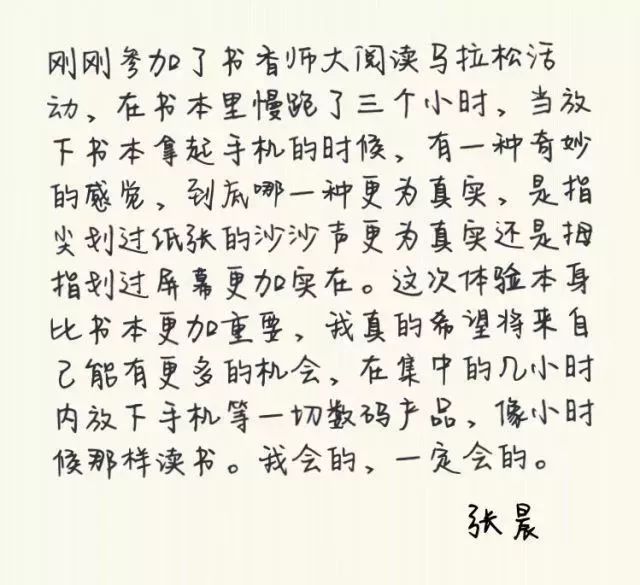 刚刚参加了书香师大阅读马拉松活
动，在书本里慢跑了三个小时，当放
下书本拿起手机的时候，有一种奇妙
的感觉，到底哪一种更为真实，是指
尖划过纸张的沙沙声更为真实还是拇
指划过屏幕更加实在。这次体验本身
比书本更加重要，我真的希望将来自
己能有更多的机会，在集中的几小时
内放下手机等一切数码产品，像小时
候那样读书。我会的，一定会的。
张晨